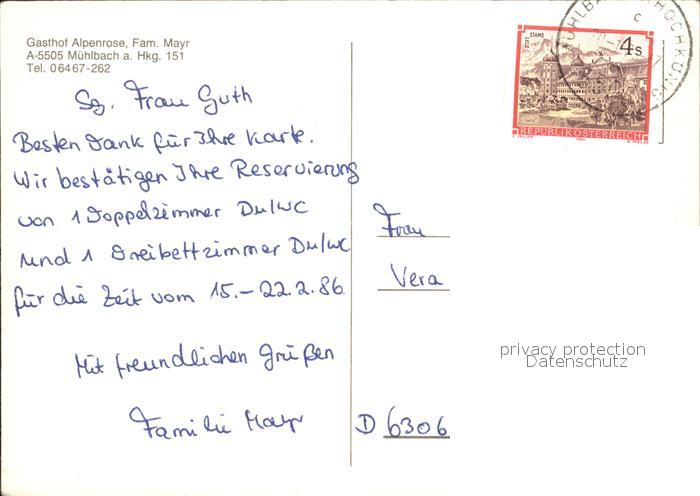 Gasthof Alpenrose, Fam. Mayr
A-5505 Mühlbach a. Hkg. 151
Tel. 06467-262
Sg. Frau Guth
Besten Dank für Ihre Karte.
Wir bestätigen Ihre Reservierung
von 1 Doppelzimmer Du/WC
und 1 Dreibettzimmer Du/WC
für die Zeit vom 15.-22.2.86
Mit freundlichen Grüßen
Familie Mayr
STIFT STAMS
4 S
REPUBLIK ÖSTERREICH
Frau
Vera
privacy protection
Datenschutz
D 6306